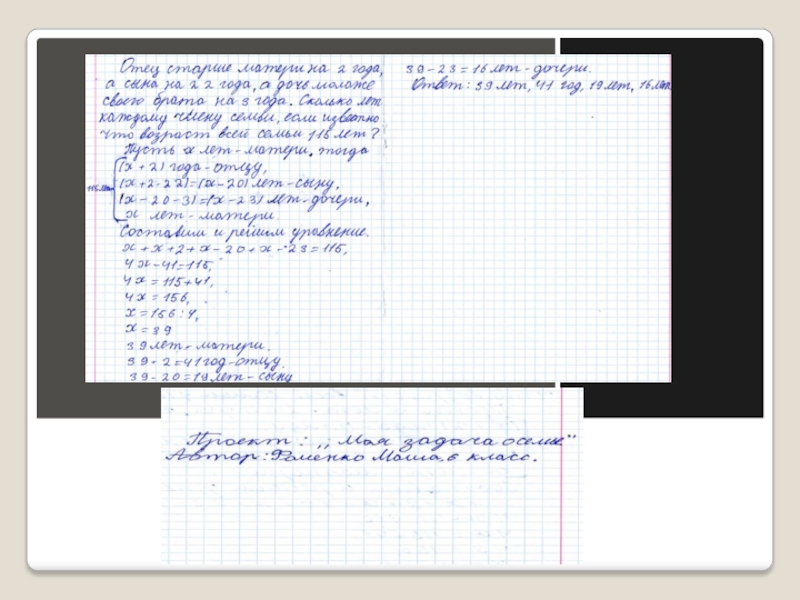 Отец старше матери на 2 года,
а сына на 22 года, а дочь моложе
своего брата на 3 года. Сколько лет
каждому члену семьи, если известно
что возраст всей семьи 115 лет?
Пусть x лет - матери. тогда
(x + 2) года - отцу,
(x+2-22)=(x-20) лет - сыну,
115 лет
(x - 20 - 3)=(x-23) лет - дочери,
x лет - матери
Составим и решим уровнение.
x + x + 2 + x - 20 + x - 23 = 115,
4x - 41 = 115,
4x = 115 + 41,
4x = 156,
x = 156 : 4,
x = 39
39 лет - матери.
39 + 2 = 41 год - отцу.
39 - 20 = 19 лет - сыну
39 - 23 = 16 лет - дочери.
Ответ: 39 лет, 41 год, 19 лет, 16 лет
Проект: ,,Моя задача о семье"
Автор: Фоменко Маша, 6 класс.